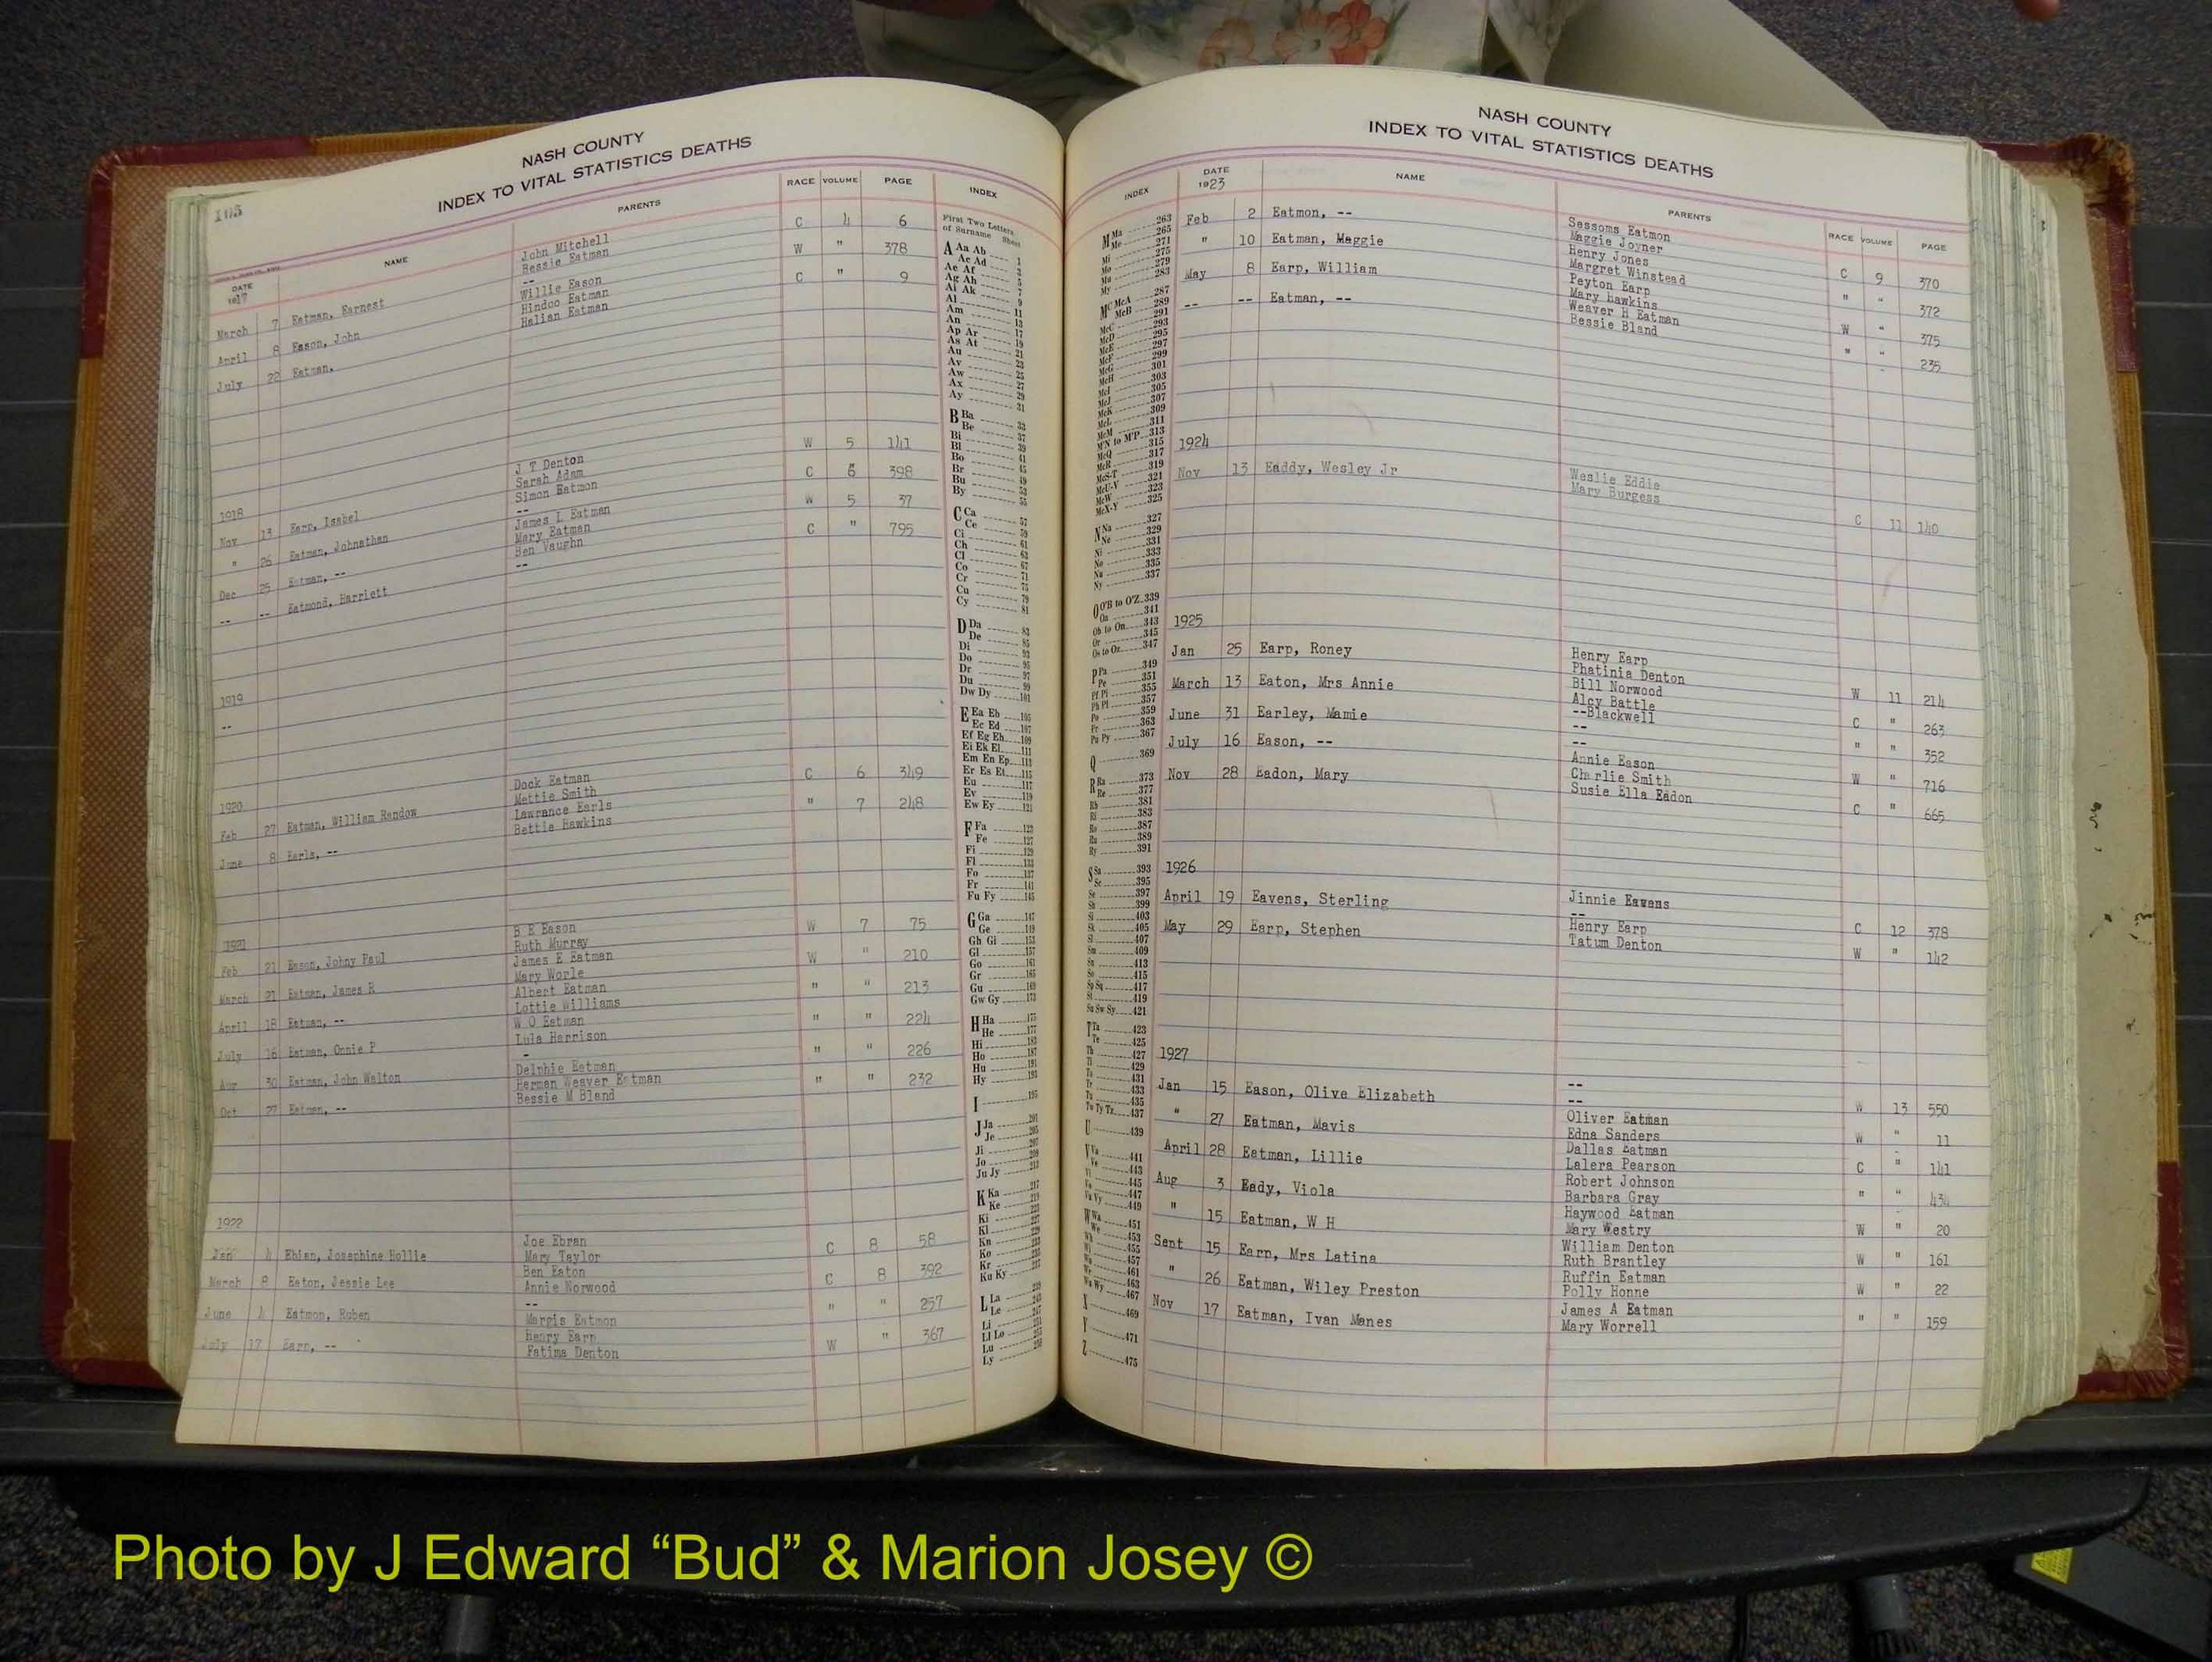 105
NASH COUNTY
INDEX TO VITAL STATISTICS DEATHS
DATE 1917 NAME PARENTS RACE VOLUME PAGE INDEX
March 7 Eatman, Earnest John Mitchell C 4 6
Bessie Eatman
April 8 Eason, John -- W " 378
Willie Eason
July 22 Eatman, Hindoo Eatman C " 9
Helian Eatman
1918
Nov 13 Earp, Isabel J T Denton W 5 141
Sarah Adam
" 26 Eatman, Johnathan Simon Eatmon C 6 398
--
Dec 25 Eatman, -- James L Eatman W 5 37
Mary Eatman
-- -- Eatmond, Harriett Ben Vaughn C " 795
--
1919
--
1920
Feb 27 Eatman, William Randow Dock Eatman C 6 349
Mettie Smith
June 8 Earls, -- Lawrance Earls " 7 248
Bettie Hawkins
1921
Feb 21 Eason, Johny Paul B E Eason W 7 75
Ruth Murray
March 21 Eatman, James R James E Eatman W " 210
Mary Worle
April 18 Eatman, -- Albert Eatman " " 213
Lottie Williams
July 16 Eatman, Onnie P W O Eatman " " 224
Lula Harrison
Aug 30 Eatman, John Walton - " " 226
Delphie Eatman
Oct 27 Eatman, -- Herman Weaver Eatman " " 232
Bessie M Bland
1922
Jan 4 Ebian, Josephine Hollie Joe Ebran C 8 58
Mary Taylor
March 8 Eaton, Jessie Lee Ben Eaton C 8 392
Annie Norwood
June 4 Eatmon, Ruben -- " " 257
Margis Eatmon
July 17 Earp, -- Henry Earp W " 367
Fatima Denton
First Two Letters
of Surname Sheet
A Aa Ab 1
Ac Ad 3
Ae Af 5
Ag Ah 7
Ai Ak 9
Al 11
Am 13
An 17
Ap Ar 19
As At 21
Au 23
Av 25
Aw 27
Ax 29
Ay 31
B Ba 33
Be 37
Bi 39
Bl 41
Bo 45
Br 49
Bu 53
By 55
C Ca 57
Ce 59
Ci 61
Ch 63
Cl 67
Co 71
Cr 75
Cu 79
Cy 81
D Da 83
De 85
Di 93
Do 95
Dr 97
Du 99
Dw Dy 101
E Ea Eb 105
Ec Ed 107
Ef Eg Eh 109
Ei Ek El 111
Em En Ep 113
Er Es Et 115
Eu 117
Ev 119
Ew Ey 121
F Fa 123
Fe 127
Fi 129
Fl 133
Fo 137
Fr 141
Fu Fy 145
G Ga 147
Ge 149
Gh Gi 153
Gl 157
Go 161
Gr 165
Gu 169
Gw Gy 173
H Ha 175
He 177
Hi 183
Ho 187
Hu 191
Hy 193
I 195
J Ja 201
Je 205
Ji 207
Jo 209
Ju Jy 213
K Ka 217
Ke 219
Ki
Kl
Kn
Ko
Kr
Ku Ky
L La
Le
Li
Ll Lo
Lu
Ly
NASH COUNTY
INDEX TO VITAL STATISTICS DEATHS
INDEX DATE 1923 NAME PARENTS RACE VOLUME PAGE
Feb 2 Eatmon, -- Sessoms Eatmon C 9 370
Maggie Joyner
" 10 Eatman, Maggie Henry Jones " " 372
Margret Winstead
May 8 Earp, William Peyton Earp W " 375
Mary Hawkins
-- -- Eatman, -- Weaver H Eatman " " 235
Bessie Bland
1924
Nov 13 Eaddy, Wesley Jr Weslie Eddie C 11 140
Mary Burgess
1925
Jan 25 Earp, Roney Henry Earp W 11 214
Phatinia Denton
March 13 Eaton, Mrs Annie Bill Norwood C " 263
Alcy Battle
June 31 Earley, Mamie --Blackwell " " 352
--
July 16 Eason, -- -- W " 716
Annie Eason
Nov 28 Eadon, Mary Charlie Smith C " 665
Susie Ella Eadon
1926
April 19 Eavens, Sterling Jinnie Eawens C 12 378
--
May 29 Earp, Stephen Henry Earp W " 142
Tatum Denton
1927
Jan 15 Eason, Olive Elizabeth -- W 13 550
--
" 27 Eatman, Mavis Oliver Eatman W " 11
Edna Sanders
April 28 Eatman, Lillie Dallas Eatman C " 141
Lalera Pearson
Aug 3 Eady, Viola Robert Johnson " " 434
Barbara Gray
" 15 Eatman, W H Haywood Eatman W " 20
Mary Westry
Sept 15 Earp, Mrs Latina William Denton W " 161
Ruth Brantley
" 26 Eatman, Wiley Preston Ruffin Eatman W " 22
Polly Honne
Nov 17 Eatman, Ivan Manes James A Eatman " " 159
Mary Worrell
M Ma 263
Me 265
Mi 271
Mo 279
Mu 283
My
Mc McA 287
McB 289
McC 291
McD 293
McE 295
McF 297
McG 299
McH 301
McI 303
McJ 305
McK 307
McL 309
McM 311
M'N to M'P 313
McQ 315
McR 317
McS-T 319
McU-V 321
McW 323
McX-Y 325
N Na 327
Ne 329
Ni 331
No 333
Nu 335
Ny 337
O O'B to O'Z 339
Oa 341
Ob to On 343
Or 345
Os to Oz 347
P Pa 349
Pe 351
Pf Pi 355
Ph Pl 357
Po 359
Pr 363
Pu Py 367
Q 369
R Ra 373
Re 377
Rh 381
Ri 383
Ro 387
Ru 389
Ry 391
S Sa 393
Sc 395
Se 397
Sh 399
Si 403
Sk 405
Sl 407
Sm 409
Sn 413
So 415
Sp Sq 417
St 419
Su Sw Sy 421
T Ta 423
Te 425
Th 427
Ti 429
To 431
Tr 433
Tu 435
Tw Ty Tz 437
U 439
V Va 441
Ve 443
Vi 445
Vo 447
Vu Vy 449
W Wa 451
We 453
Wh 455
Wi 457
Wo 461
Wr 463
Wu Wy 467
X 469
Y 471
Z 475
Photo by J Edward “Bud” & Marion Josey ©